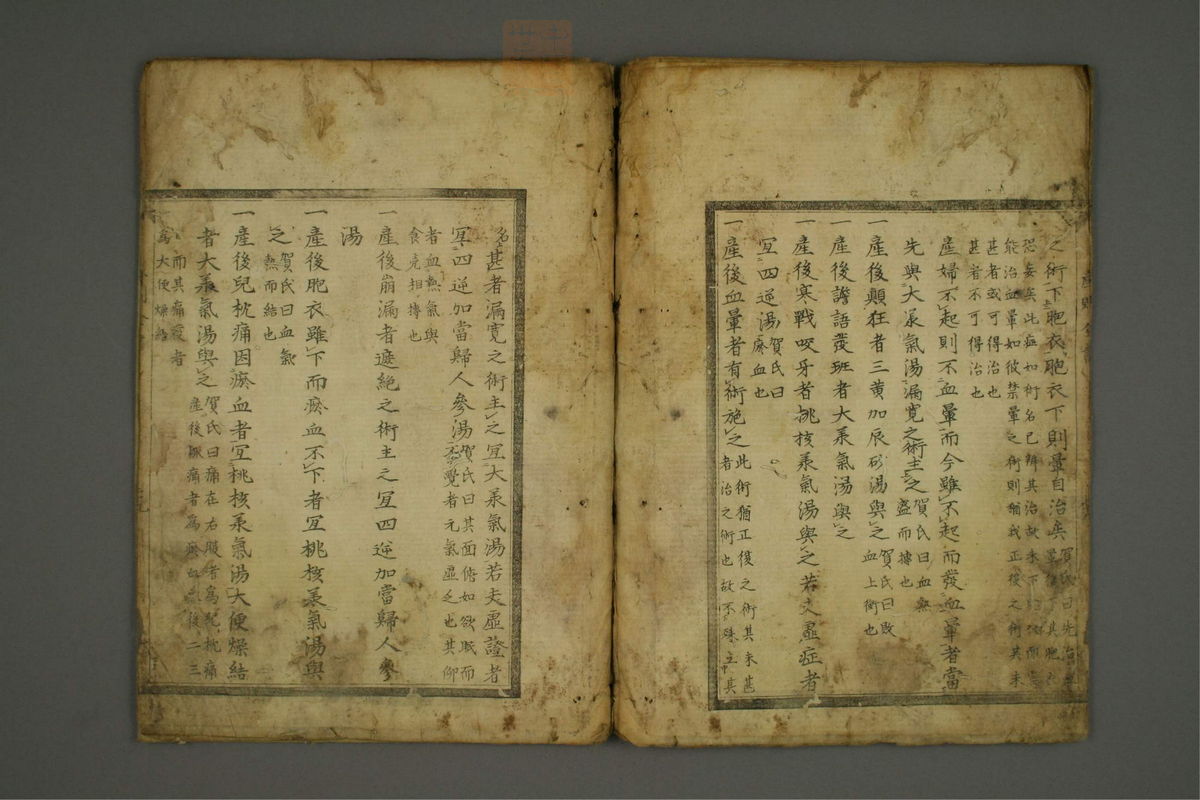 之術下胞衣胞衣下則暈自治矣賀氏曰先治
恐妄矣此症如術名已辨其治故未下
能治血暈如彼禁暈之術則猶我正後之術其未
甚者或可得治也
甚者不可得治也
産婦不起則不血暈而今雖不起而發血暈者當
先與大承氣湯漏寛之術主之賀氏曰血無
盛而據也
一産後顛狂者三黄加辰砂湯與之賀氏曰敗
血上衝也
一産後譫語發班者大承氣湯與之
一産後寒戰咬牙者桃核承氣湯與之若夫虛症者
宜四逆湯賀氏曰
瘀血也
一産後血暈者有術施之此術猶正後之術其未甚
者治之術也故不殊立其
名甚者漏寛之術主之宜大承氣湯若夫虛證者
宜四逆加當歸人參湯賀氏曰其面俯如欲眠而
不覺者元氣虛乏也其仰
者血熱氣與
食克相摶也
一産後崩漏者遮絶之術主之宜四逆加當歸人參
湯
一産後胞衣雖下而瘀血不下者宜桃核承氣湯與
之賀氏曰血氣
熱而結也
一産後兒枕痛因瘀血者宜桃核承氣湯大便燥結
者大承氣湯與之賀氏曰痛在右股者爲兒枕痛
産後腹痛者爲瘀血産後二三
而其痛復者
爲大便燥結